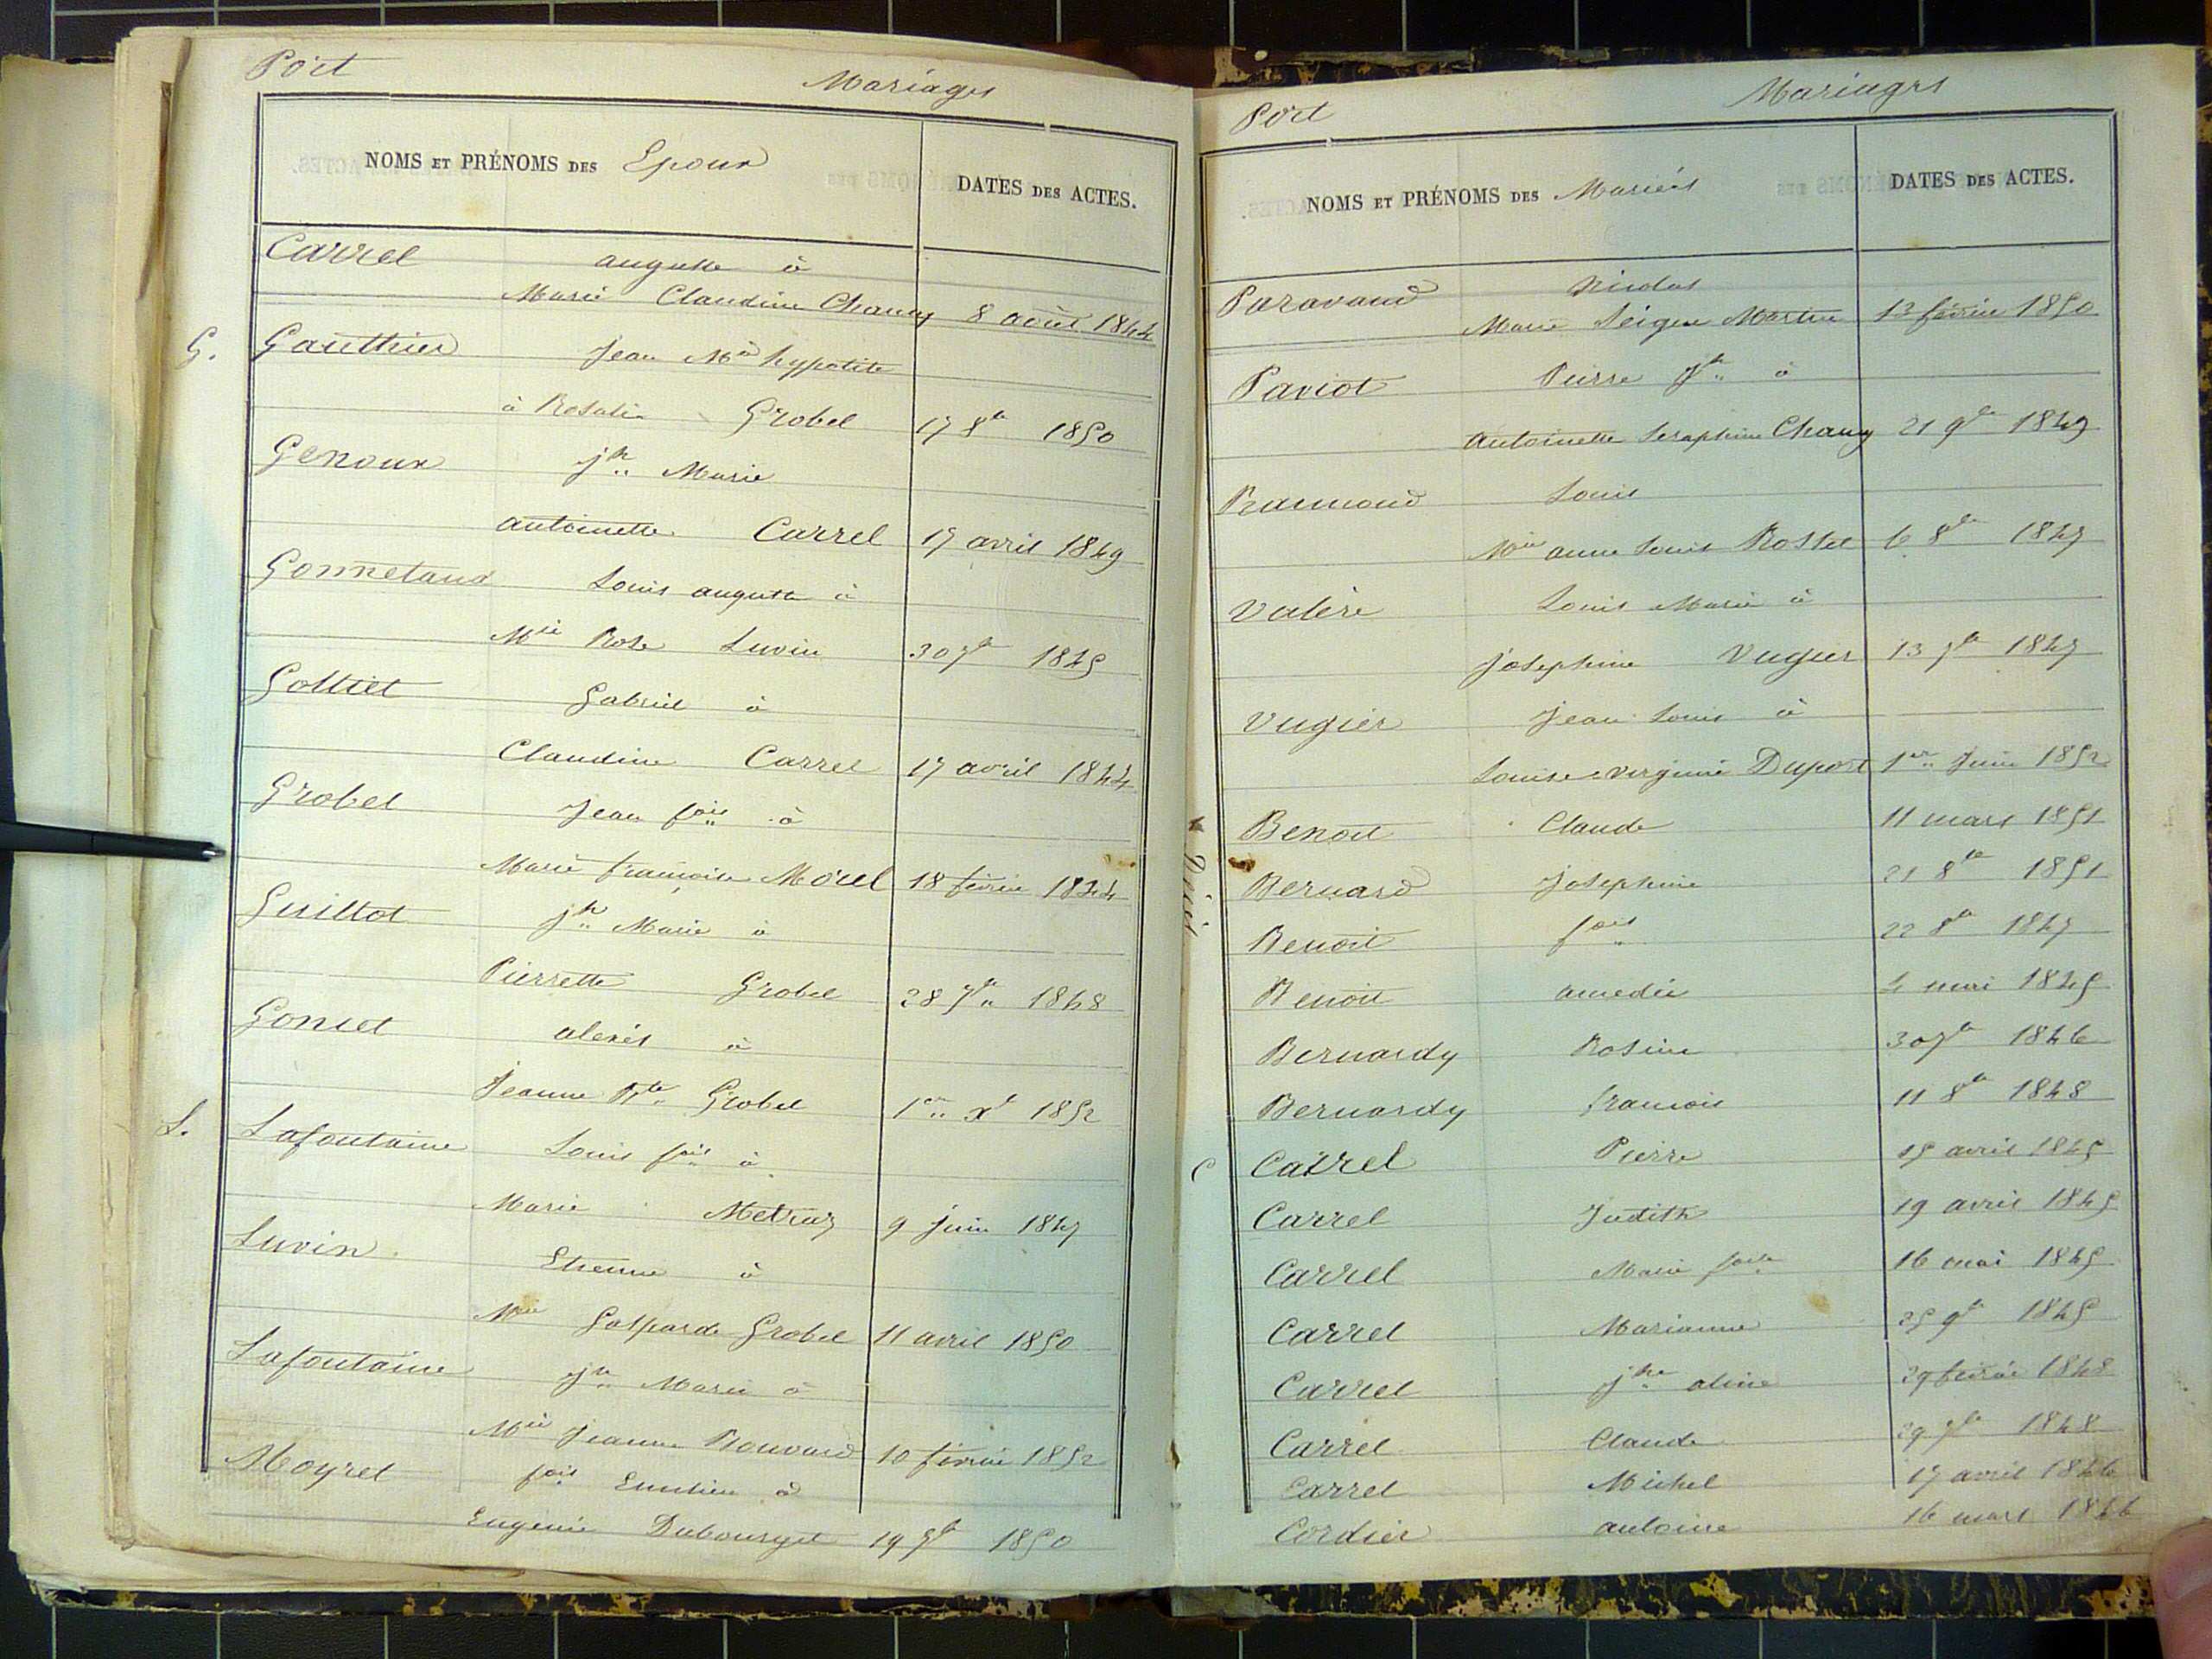 Port Mariages
NOMS ET PRÉNOMS DES Epoux DATES DES ACTES.
Carrel auguste à
Marie Claudine Chanay 8 août 1844
G. Gauthier Jean Mie hypolite
à Rosalie Grobel 17 8bre 1850
Genoux jh Marie
antoinette Carrel 17 avril 1849
Gonnetand Louis auguste à
Mie Rose Luvin 30 7bre 1845
Golliet Gabriel à
Claudine Carrel 17 avril 1844
Grobel Jean fois à
Marie françoise Morel 18 février 1844
Guillot jh Marie à
Pierrette Grobel 28 7bre 1848
Goncet alexis à
Jeanne Bte Grobel 1er xbre 1852
L. Lafontaine Louis fois à
Marie Metraz 9 juin 1847
Luvin Etienne à
Mie Gasparde Grobel 11 avril 1850
Lafontaine jh Marie à
Mie Jeanne Bouvard 10 février 1852
Moyret fois Emilien à
Eugenie Dubourget 19 7bre 1850
Port Mariages
NOMS ET PRÉNOMS DES Mariés DATES DES ACTES.
Paravand Nicolas
Marie Seigne Martin 13 février 1850
Paviot Pierre Jh à
antoinette Seraphine Chanay 21 9bre 1849
Raimond Louis
Mie anne Louis Rosset 6 8bre 1847
Valère Louis Marie à
josephine Vugier 13 7bre 1847
Vugier Jean Louis à
Louise virginie Duport 1er Juin 1852
Benoit Claude 11 mars 1851
Bernard Josephine 21 8bre 1851
Benoit fois 22 8bre 1847
Benoit amedée 4 mai 1845
Bernardy Rosine 30 7bre 1846
Bernardy francois 11 8bre 1848
C Carrel Pierre 15 avril 1845
Carrel Judith 19 avril 1845
Carrel Marie foise 16 mai 1845
Carrel Marianne 25 9bre 1845
Carrel jhe aline 29 février 1848
Carrel Claude 29 7bre 1848
Carrel Michel 17 avril 1846
Cordier antoine 16 mars 1846